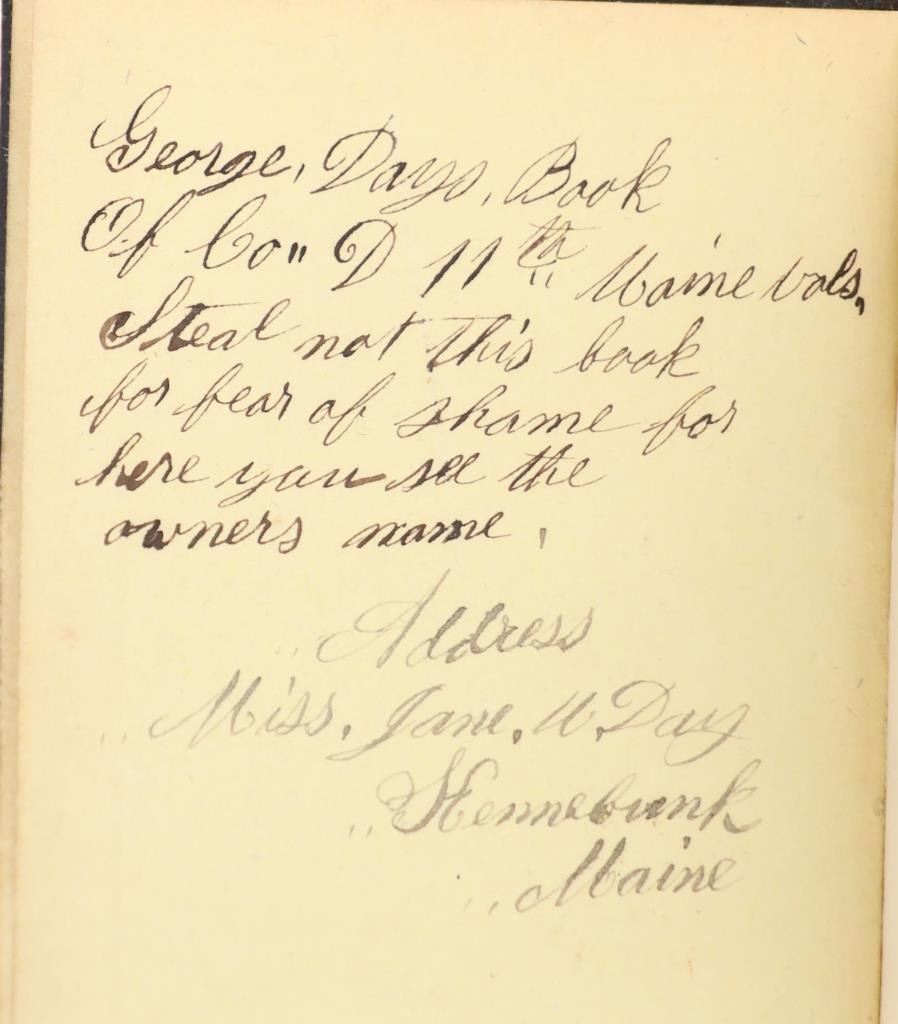 George, Days, Book
Of Co" D 11th Maine vols,
Steal not this book
for fear of shame for
here you see the
owners name,
Address
Miss, Jane, M, Day
Kennebunk
Maine